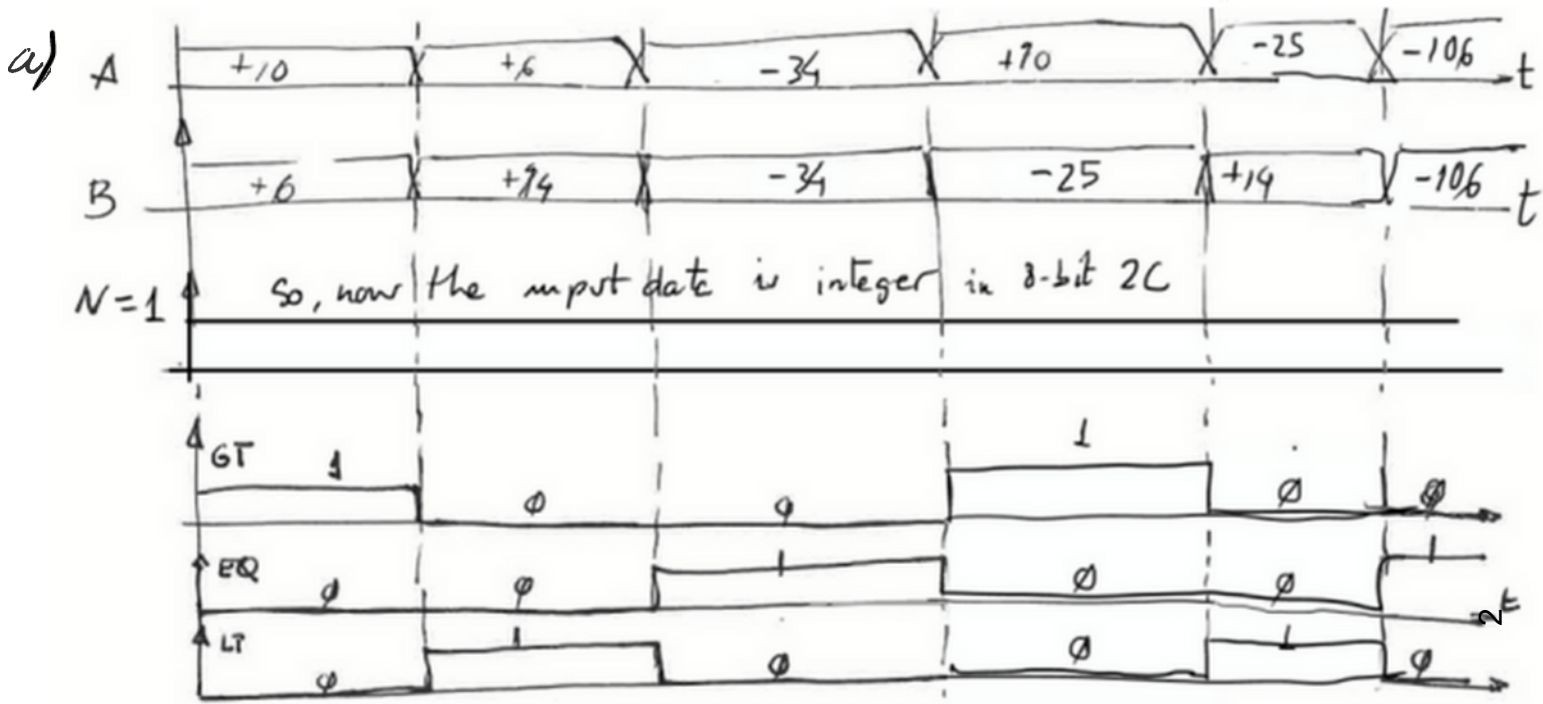 a)
A +10 +6 -34 +10 -25 -106 t
B +6 +14 -34 -25 +14 -106 t
N=1 So, now the input data is integer in 8-bit 2C
GT 1 Ø Ø 1 Ø Ø
EQ Ø Ø 1 Ø Ø 1 t
2
LT Ø 1 Ø Ø 1 Ø